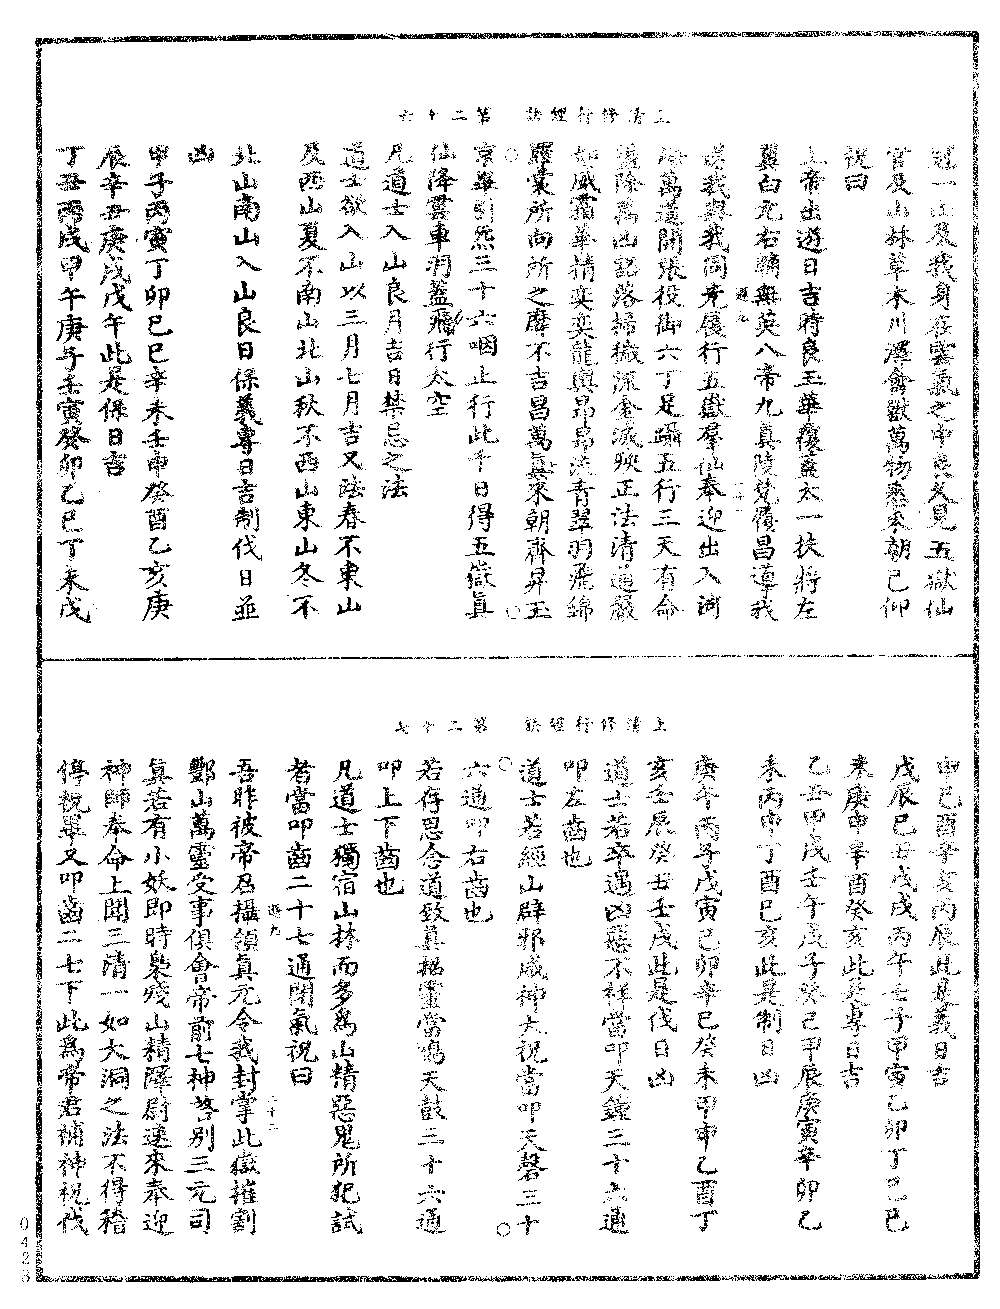 上清修行經訣　第二十六
冠一山及我身在雲氣之中良久見五嶽仙
官及山林草木川澤禽獸萬物悉來朝已仰
祝曰
上帝出遊日吉時良玉華覆蓋太一扶將左
翼白元右輔無英八帝九真陵梵僨昌導我
送我與我同光履行五嶽羣仙奉迎出入洞
萬道開張役御六丁足躡五行三天有命
蕩除萬凶記落掃穢深金滅殃正法清道嚴
如威霜華精奕奕龍輿昂昂流青翠羽飛錦
羅裳所向所之靡不吉昌萬真來朝齊昇玉
京畢引炁三十六咽止行此千日得五嶽真
仙降雲車羽蓋飛行太空
凡道士入山良月吉日禁忌之法
道士欲入山以三月七月吉又法春不東山
及西山夏不南山北山秋不西山東山冬不
北山南山入山良日保義專日吉制伐日並
凶
甲子丙寅丁卯己巳辛未壬申癸酉乙亥庚
辰辛丑庚戌戊午此是保日吉
丁丑丙戌甲午庚子壬寅癸卯乙巳丁未戊
上清修行經訣　第二十七
申己酉辛亥丙辰此是義日吉
戊辰己丑戊戌丙午壬子甲寅乙卯丁巳己
未庚申辛酉癸亥此是專日吉
乙丑甲戌壬午戊子癸巳甲辰庚寅辛卯乙
未丙申丁酉己亥此是制日凶
庚午丙子戊寅己卯辛巳癸未甲申乙酉丁
亥壬辰癸丑壬戌此是伐日凶
道士若卒遇凶惡不祥當叩天鐘三十六通
叩左齒也
道士若經山辟邪威神大祝當叩天磬三十
六通叩右齒也
若存思念道致真招靈當鳴天鼓三十六通
叩上下齒也
凡道士獨宿山林而多為山精惡鬼所犯試
者當叩齒二十七通閉氣祝曰
吾昨被帝召攝領真元令我封掌此嶽摧割
酆山萬靈受事俱會帝前七神咨別三元司
真若有小妖即時梟殘山精澤尉速來奉迎
神師奉命上聞三清一如大洞之法不得稽
停祝畢又叩齒二七下此為帝君辅神祝伐
0423